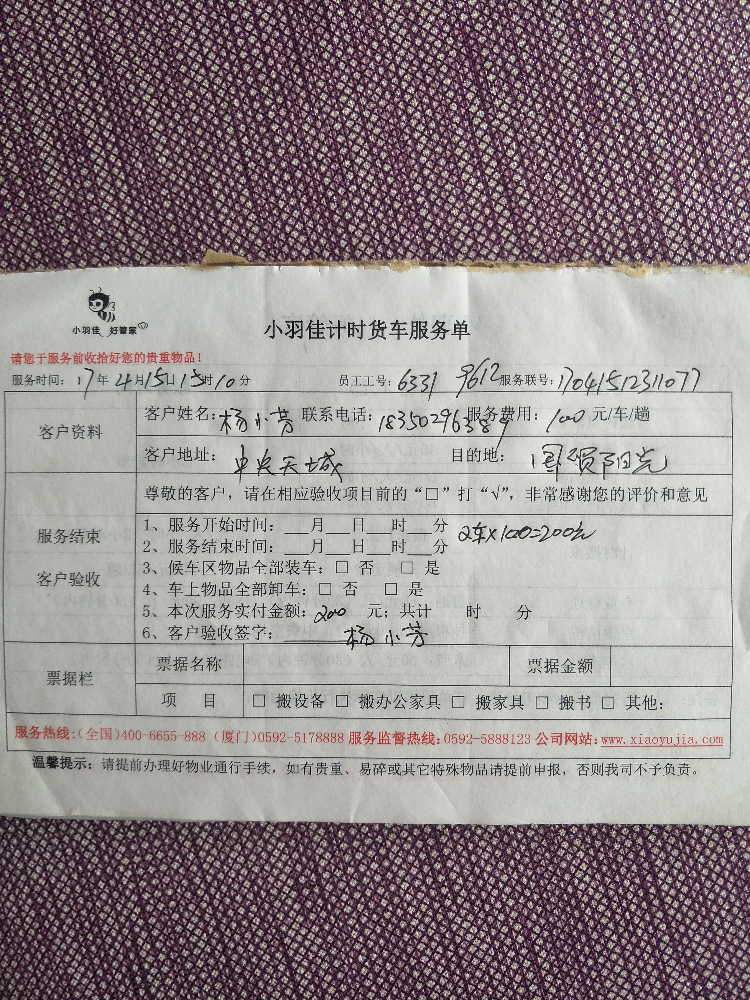 小羽佳 好管家
小羽佳计时货车服务单
请您于服务前收拾好您的贵重物品！
服务时间：17年4月15日15时10分 员工工号：6331 9612 服务联号：17041512311077
客户资料
客户姓名：杨小芳 联系电话：18350296389 服务费用：100元/车/趟
客户地址：中央天城 目的地：国贸阳光
服务结束
客户验收
尊敬的客户，请在相应验收项目前的“□”打“√”，非常感谢您的评价和意见
1、服务开始时间：___月___日___时___分 2车×100=200元
2、服务结束时间：___月___日___时___分
3、候车区物品全部装车：□ 否 □ 是
4、车上物品全部卸车：□ 否 □ 是
5、本次服务实付金额：200 元；共计 时 分
6、客户验收签字：杨小芳
票据栏
票据名称 票据金额
项 目 □ 搬设备 □ 搬办公家具 □ 搬家具 □ 搬书 □ 其他：
服务热线：(全国)400-6655-888 (厦门)0592-5178888 服务监督热线：0592-5888123 公司网站：www.xiaoyujia.com
温馨提示：请提前办理好物业通行手续，如有贵重、易碎或其它特殊物品请提前申报，否则我司不予负责。